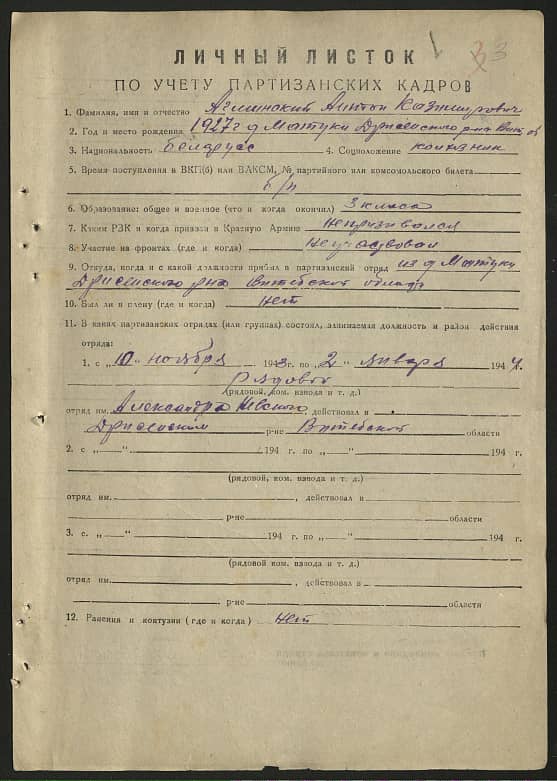 33
ЛИЧНЫЙ ЛИСТОК
ПО УЧЕТУ ПАРТИЗАНСКИХ КАДРОВ
1. Фамилия, имя и отчество Аглинский Антон Казимирович
2. Год и место рождения 1927 г д Матуки Дриссенского р-на Вит. об
3. Национальность белорус 4. Соцположение колхозник
5. Время поступления в ВКП(б) или ВЛКСМ, № партийного или комсомольского билета
б/п
6. Образование: общее и военное (что и когда окончил) 3 класса
7. Каким РЗК и когда призван в Красную Армию Непризывался
8. Участие на фронтах (где и когда) Неучаствовал
9. Откуда, когда и с какой должности прибыл в партизанский отряд из д Матуки
Дриссенского р-на Витебской области
10. Был ли в плену (где и когда) нет
11. В каких партизанских отрядах (или группах) состоял, занимаемая должность и район действия
отряда:
1. с „10" ноября 1943 г. по „2" января 1944 г.
Рядовой
(рядовой, ком. взвода и т. д.)
отряд им. Александра Невского, действовал в
Дриссенском р-не Витебской области
2. с „ — " 194 г. по „ — " 194 г.
(рядовой, ком. взвода и т. д.)
отряд им. , действовал в
р-не области
3. с. „ — " 194 г. по „ — " 194 г.
(рядовой ком. взвода и т. д.)
отряд им. , действовал в
р-не области
12. Ранения и контузии (где и когда) нет